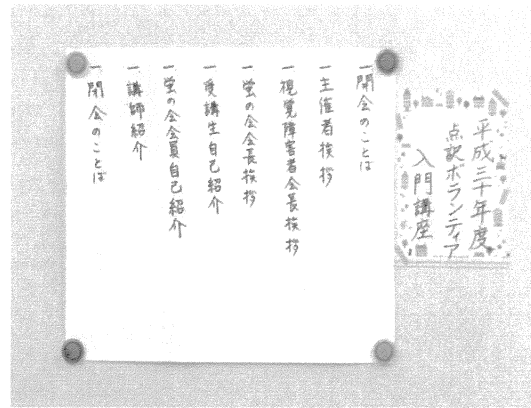 平成三十年度
点訳ボランティア
入門講座
一 開会のことば
一 主催者挨拶
一 視覚障害者会長挨拶
一 蛍の会会長挨拶
一 受講生自己紹介
一 蛍の会会員自己紹介
一 講師紹介
一 閉会のことば